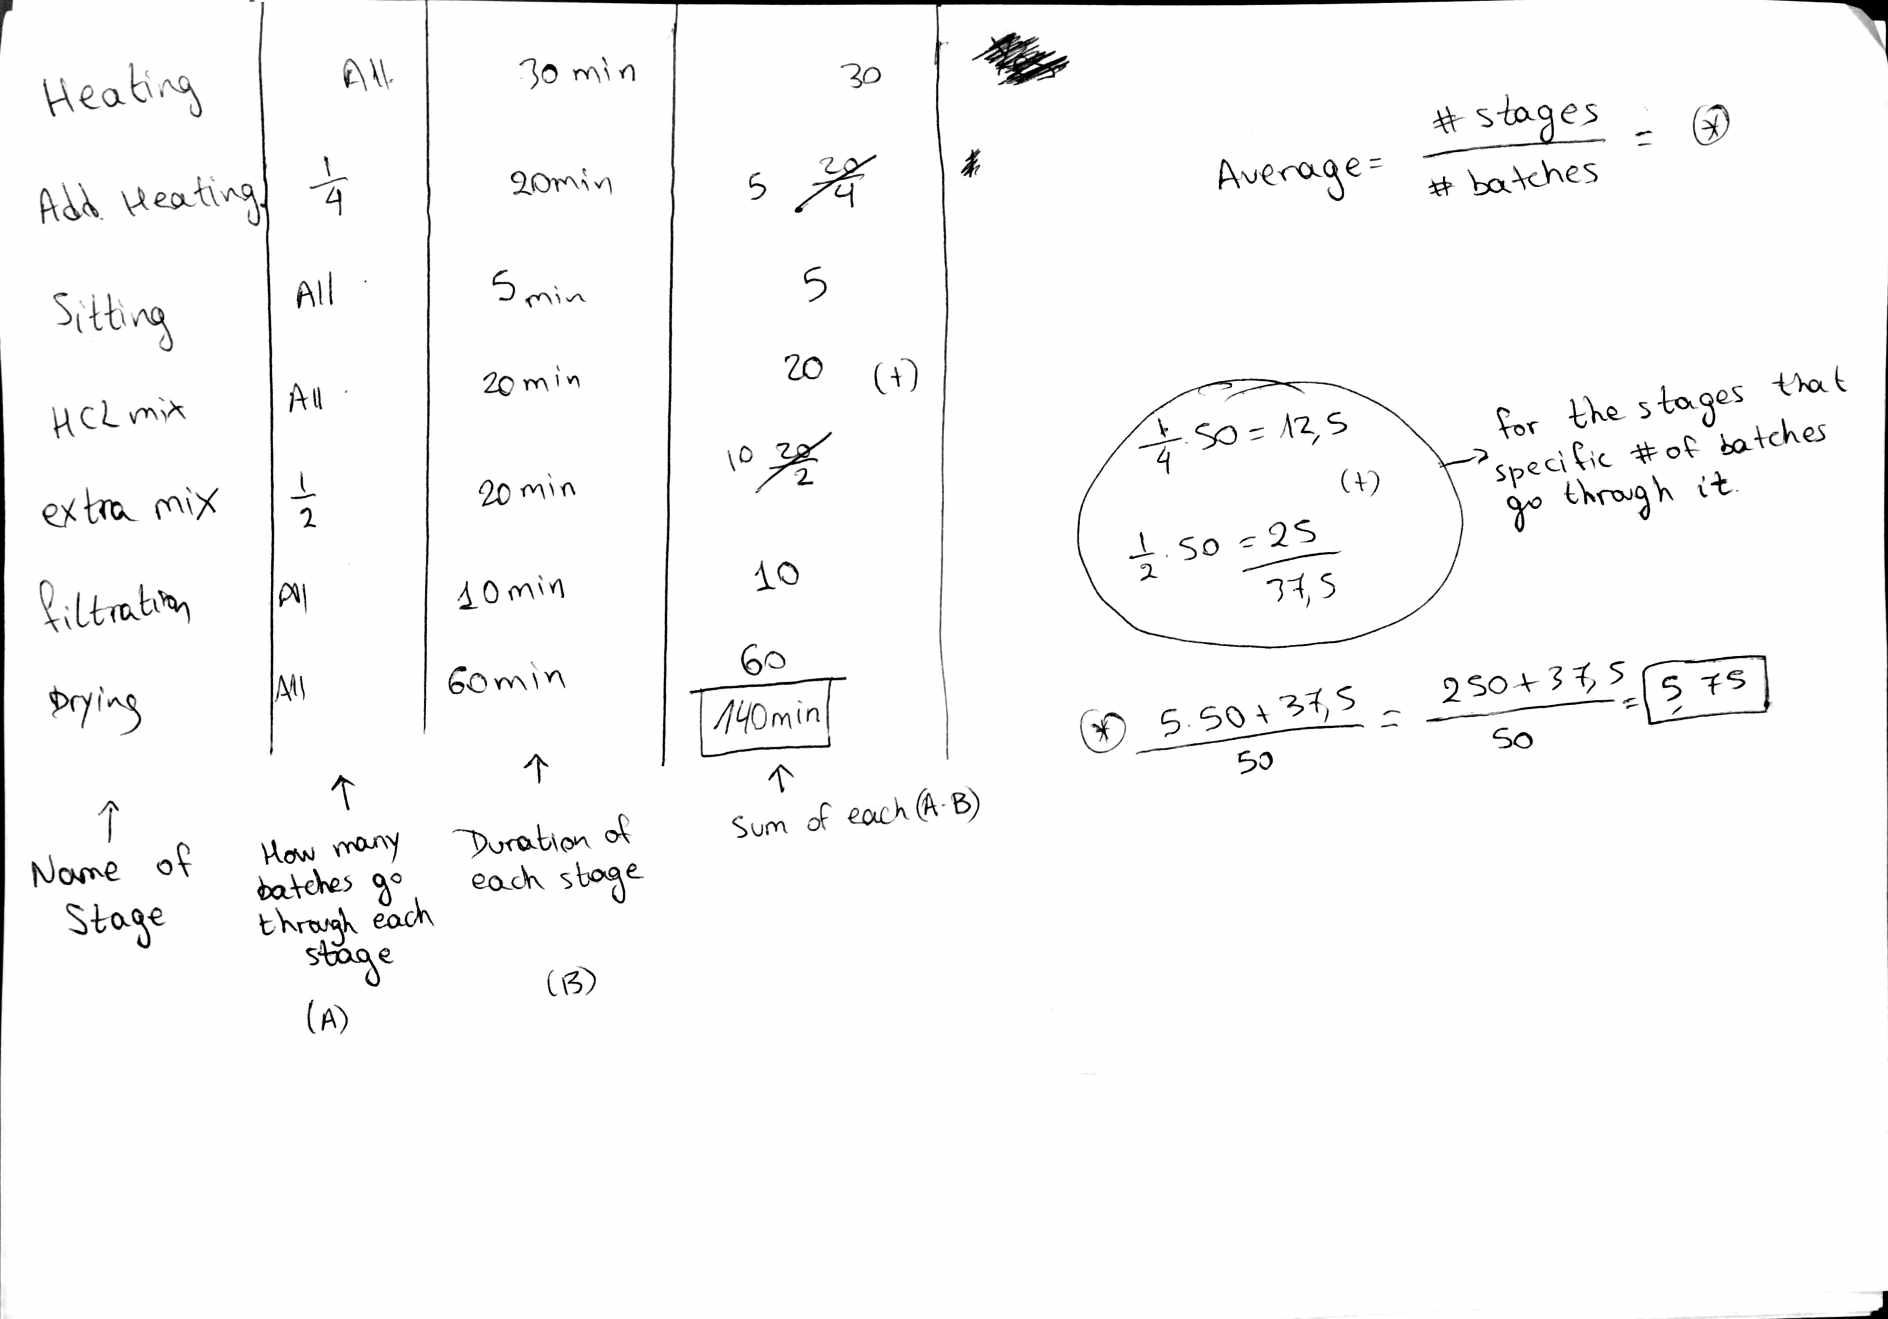 Heating All 30 min 30
Add Heating 1/4 20min 5 20/4
Sitting All 5 min 5
HCL mix All 20 min 20 (+)
extra mix 1/2 20 min 10 20/2
filtration All 10 min 10
Drying All 60 min 60
140 min
↑ ↑ ↑ ↑
Name of
Stage
How many
batches go
through each
stage
(A)
Duration of
each stage
(B)
Sum of each (A·B)
Average = # stages / # batches = *
1/4 · 50 = 12,5
(+)
1/2 · 50 = 25
37,5
→ for the stages that
specific # of batches
go through it.
* 5.50 + 37,5 / 50 = 250 + 37,5 / 50 = 5,75